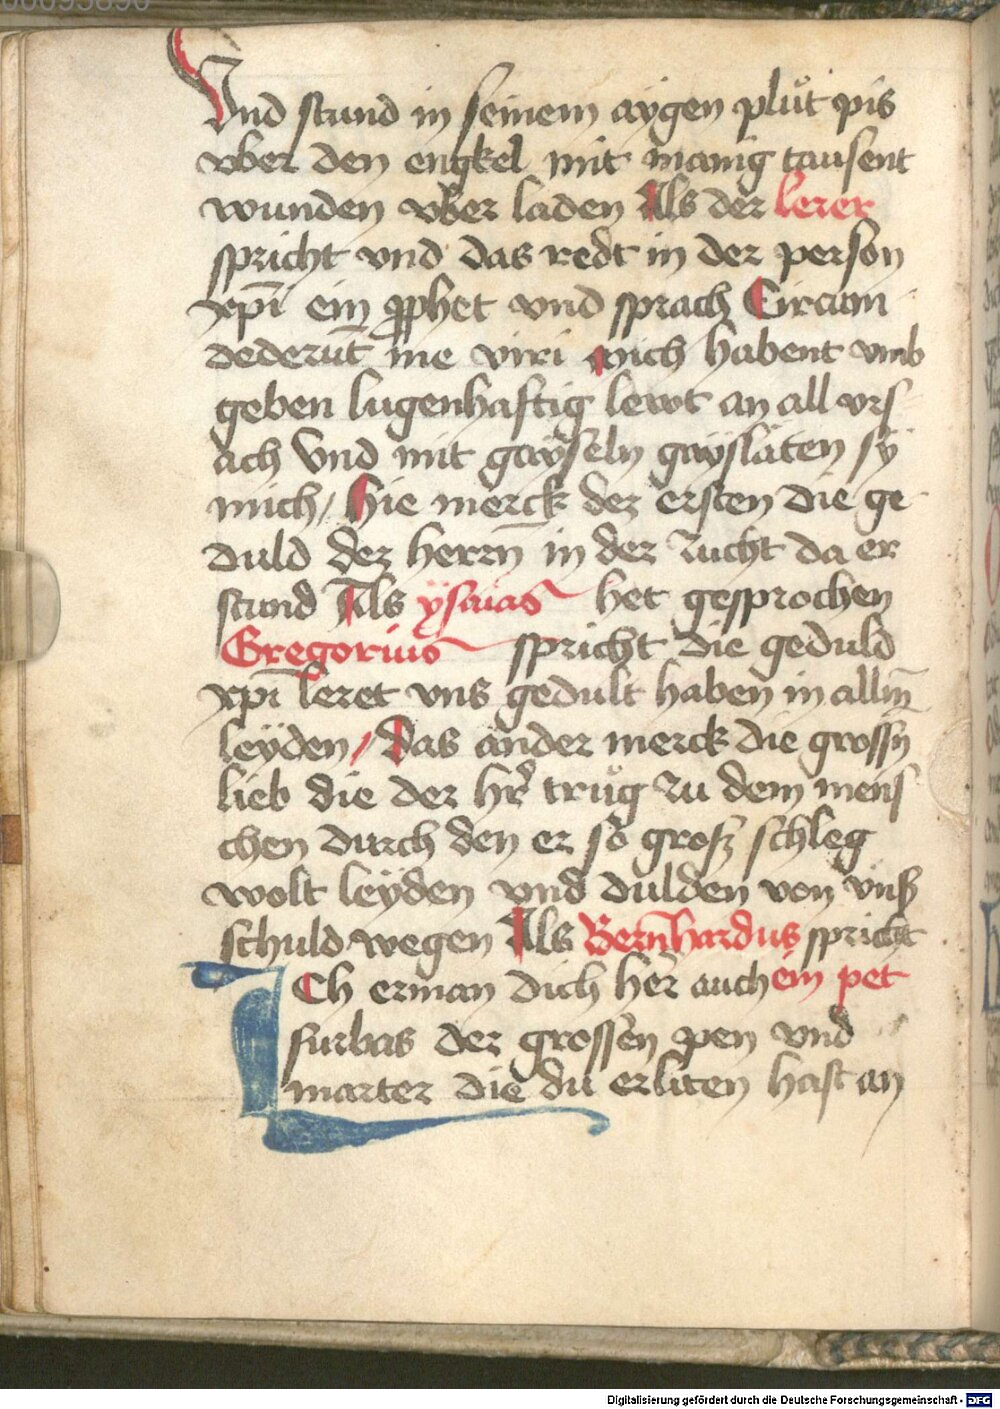 Vnd stund in seinem aygen plůt pis
vber den engkel mit manig tausent
wunden vber laden Als der lerer
spricht vnd das redt in der person
xp̄i ein ꝓphet vnd sprach Circum
dederūt me viri mich habent vmb
geben lugenhaftig lewt an all vrs
ach Vnd mit gayseln gaysläten sy
mich / Hie merck der ersten die ge
duld der herrn̄ in der zucht da er
stund Als ysaias het gesprochen
Gregorius spricht die geduld
xp̄i leret vns gedult haben in allin̄
leyden / Das ander merck die grossn̄
lieb die der hr̄ trůg zu dem mens
chen durch den er so groß schleg
wolt leyden vnd dulden von vnß
schuld wegen Als Bern̄hardus spricht
Ich erman dich her auch ein pet
furbas der grossen pen vnd
marter die du erliten hast an
Digitalisierung gefördert durch die Deutsche Forschungsgemeinschaft - DFG